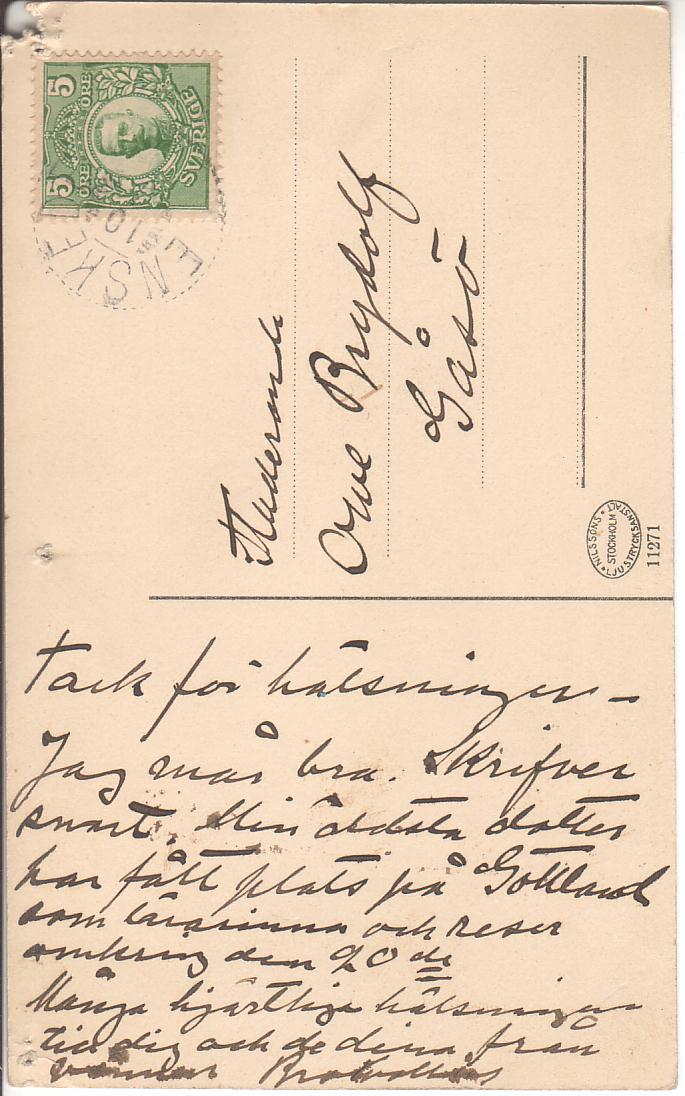 5 ÖRE
5 ÖRE
SVERIGE
ENSKE
10
Studerande
Owe Brydolf
Gåsö
NILSSONS LJUSTRYCKSANSTALT
STOCKHOLM
11271
Tack för hälsningen –
Jag mår bra. Skrifver
snart. Min äldsta dotter
har fått plats på Gottland
som lärarinna och reser
omkring den 20 de
Många hjärtliga hälsningar
till dig och de dina från
vännen